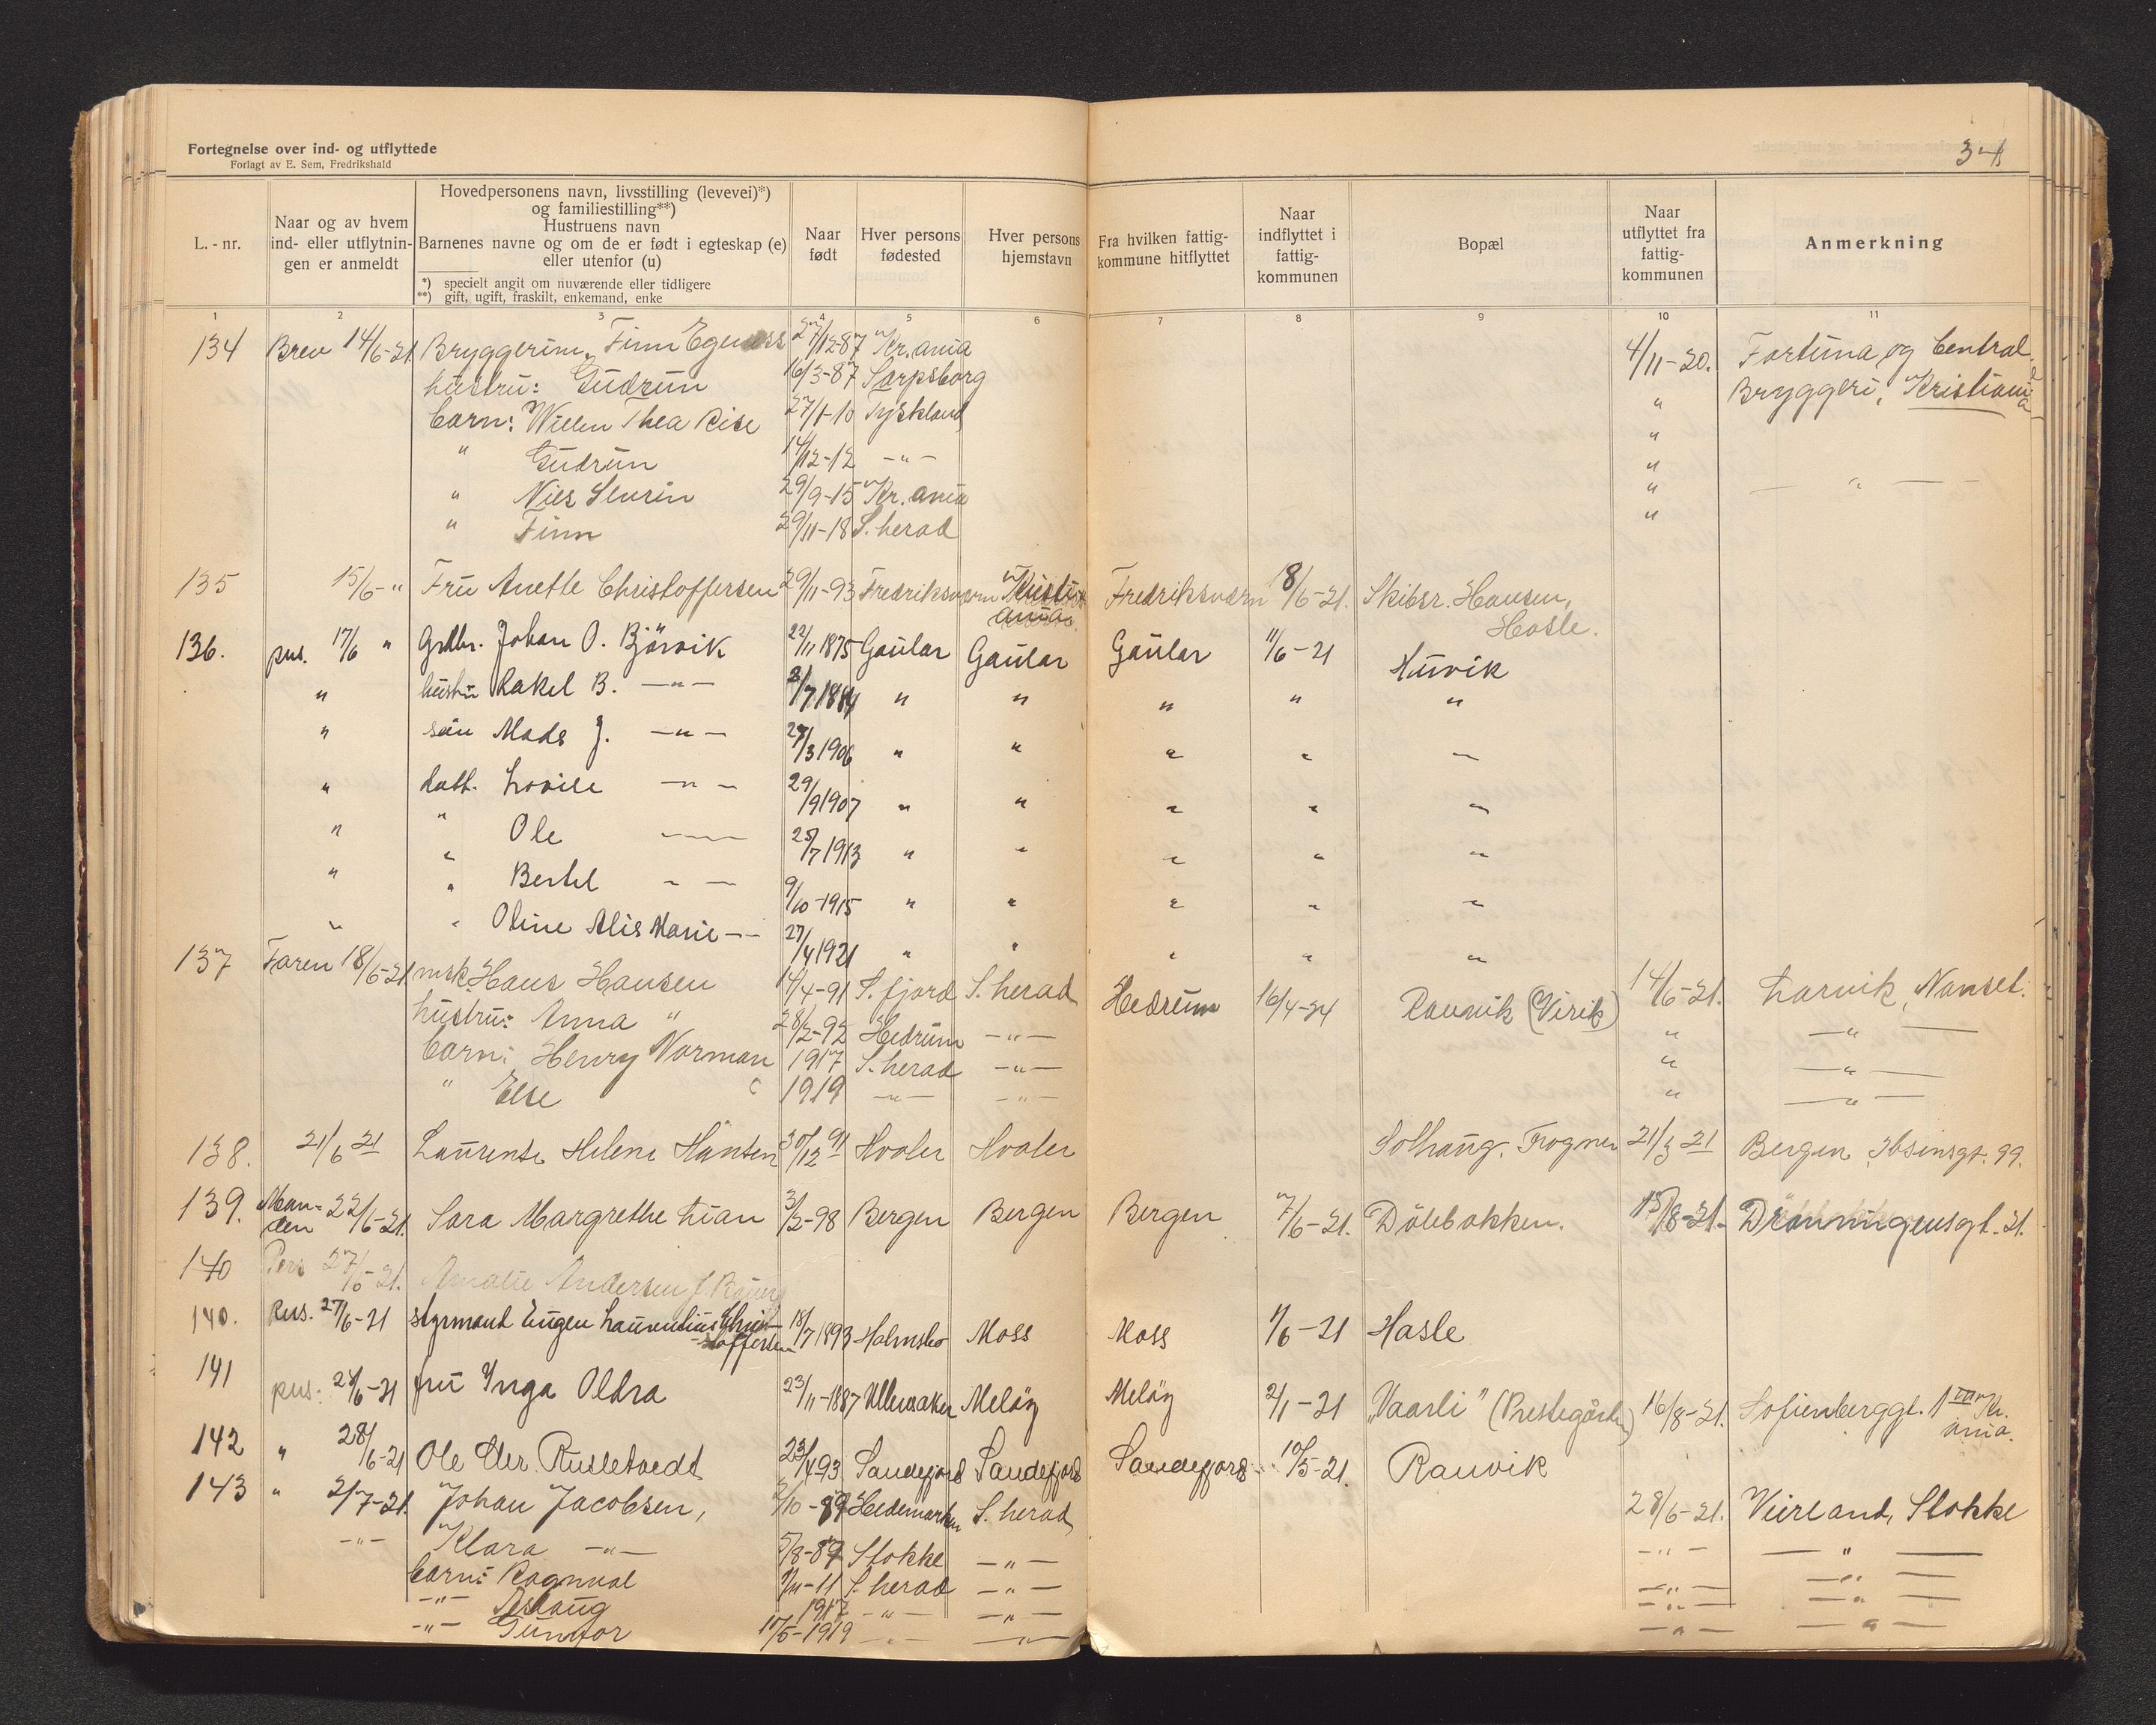 Fortegnelse over ind- og utflyttede
Forlagt av E. Sem, Fredrikshald
34
L.-nr.
Naar og av hvem ind- eller utflytnin-gen er anmeldt
Hovedpersonens navn, livsstilling (levevei)*)
og familiestilling**)
Hustruens navn
Barnenes navne og om de er født i egteskap (e)
eller utenfor (u)
*) specielt angit om nuværende eller tidligere
**) gift, ugift, fraskilt, enkemand, enke
Naar født
Hver persons fødested
Hver persons hjemstavn
Fra hvilken fattig-kommune hitflyttet
Naar indflyttet i fattig-kommunen
Bopæl
Naar utflyttet fra fattig-kommunen
Anmerkning
1 2 3 4 5 6 7 8 9 10 11
134 Brev 14/6-21. Bryggerim. Finn Egeness 27/12-87 Kr.ania 4/11-20. Fortuna og Central
hustru: Gudrun 16/3-87 Sarpsborg " Bryggeri, Kristiania
barn: Thea 27/1-10 Tyskland "
" Gudrun 14/12-12 -"- "
" Niels 29/9-15 Kr.ania " — " —
" Finn 29/11-18 S.herad "
135 15/6-" Fru Anette Christoffersen 29/11-93 Fredriksværn Kristiania Fredriksværn 8/6-21. Skibsr. Hansen,
Hasle.
136. pus. 17/6 " Grdbr. Johan O. Björvik 22/11 1875 Gaular Gaular Gaular 11/6-21 Huvik
" hustru Rakel B. -"- /7 1884 " " " " "
" sön Mads J. -"- /3 1906 " " " " —
" datt. Lovise -"- 29/9 1907 " " " " "
" " Ole — 25/7 1913 " " " " "
" " Bertel - — 9/10-1915 " " " " "
" " Oline Alis Marie -- 27/4 1921 " " " " "
137 Faren 18/6-21. msk. Hans Hansen 14/4-91 S.fjord S.herad Hedrum 16/4-21 Ranvik (Virik) 14/6-21. Larvik, Nanset.
hustru: Anna " 28/2-92 Hedrum -"- " -"-
barn: Henry Norman 1917 S.herad -"- " -"-
" Else 1919 -"- -"- " -"-
138. 21/6 21 Laurentse Helene Hansen 30/12 91 Hvaler Hvaler Solhaug. Frogner 21/3 21 Bergen Ibsensgt. 99.
139. Man-den 22/6-21. Sara Margrethe Lian 3/2-98 Bergen Bergen Bergen 7/6-21. Dölebakken. 15/8-21- Dronningensgt. 21.
140 Pers 27/6-21. Amalie Andersen f.
140. Pers. 27/6-21 styrmand Eugen Laurentius Christ-
-hoffersen 18/7 1893 Holmsbo Moss Moss 1/6-21 Hasle
141 pus. 28/6-21 fru Inga Oldra 23/11-1887 Ullensaker Melöy Melöy 2/1-21 "Vaarli" (Prestegården) 16/8-21. Sofienberggt. 1 Kr.
ania.
142 " 28/6-21 Ole Chr. Rusletvedt 23/4-93 Sandefjord Sandefjord Sandefjord 10/5-21. Ranvik
143 " 2/7-21. Johan Jacobsen, 2/10-89 Hedemarken S.herad 28/6-21. Veierland, Stokke
-"- Klara -"- 5/8-87 Stokke -"- -"- -"-
barn: Ragnval /11-11 S.herad -"- -"- -"-
-"- Aslaug 1917 -"- -"- -"- -"-
-"- Gunvor 17/5-1919 -"- -"- -"- -"-